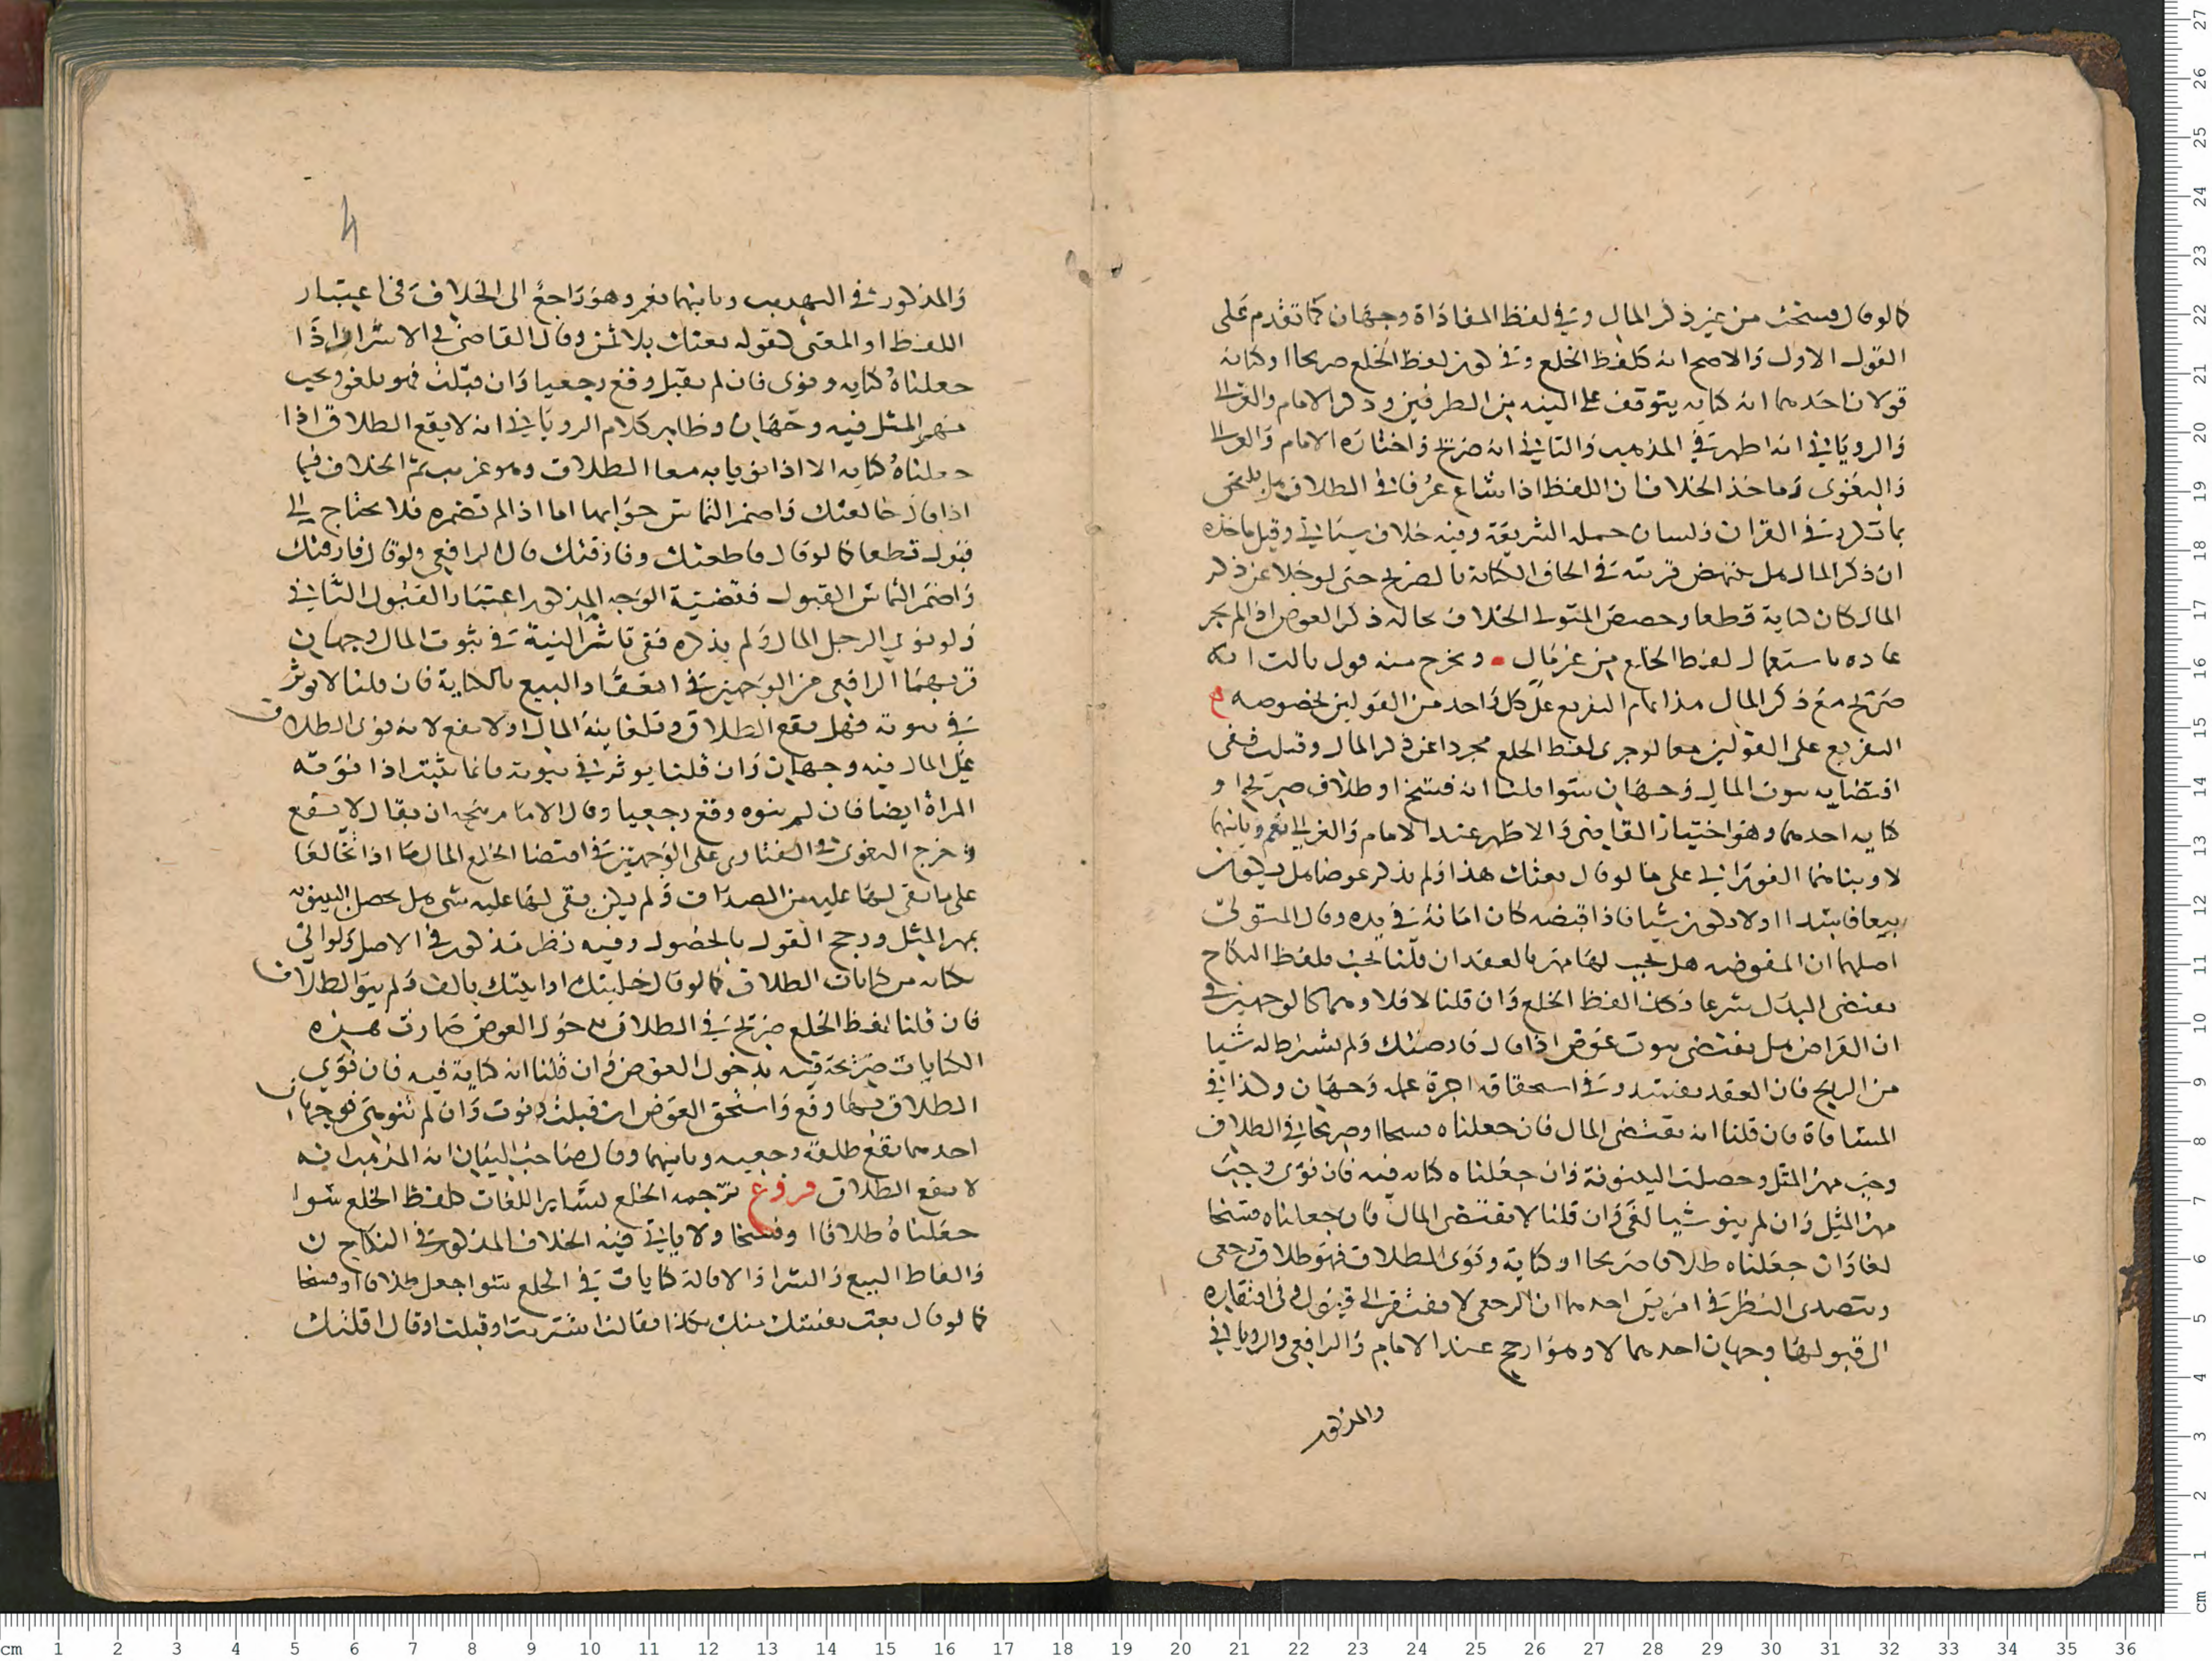 كما لو قال فسخت من غير ذكر المال وفي لفظ المفاداة وجهان كما تقدم على
القول الاول والاصح انه كلفظ الخلع وفي كون لفظ الخلع صريحا او كناية
قولان احدهما انه كناية يتوقف على النية من الطرفين وذكر الامام والغزالي
والروياني انه اظهر في المذهب والثاني انه صريح واختاره الامام والغزالي
والبغوي وماخذ الخلاف ان اللفظ اذا شاع عرفا في الطلاق هل يلتحق
بما تكرر في القران ولسان حملة الشريعة وفيه خلاف سياتي وقيل ماخذه
ان ذكر المال هل ينتهض قرينة في الحاق الكناية بالصريح حتى لو خلا عن ذكر
المال كان كناية قطعا وخصص المتولي الخلاف بحالة ذكر العوض اذا لم يجر
عادة باستعمال لفظ الخلع من غير مال ويخرج منه قول ثالث انه
صريح مع ذكر المال هذا تمام التفريع على كل واحد من القولين بخصوصه
التفريع على القولين معا لو جرى لفظ الخلع مجردا عن ذكر المال وقبلت ففي
اقتضايه ثبوت المال وجهان سوا قلنا انه فسخ او طلاق صريح او
كناية احدهما وهو اختيار القاضي والاظهر عند الامام والغزالي نعم وثانيهما
لا وبناهما الفوراني على ما لو قال بعتك هذا ولم يذكر عوضا هل يكون
بيعا فاسدا او لا يكون شيا فاذا قبضه كان امانة في يده وقال المتولي
اصلهما ان المفوضه هل يجب لها مهر بالعقد ان قلنا يجب فلفظ النكاح
يقتضي البدل شرعا وكذا لفظ الخلع وان قلنا لا فلا وهما كالوجهين في
ان القراض هل يقتضي ثبوت عوض اذا قال قارضتك ولم يشترط له شيا
من الربح فان العقد يفسد وفي استحقاقه اجرة عمله وجهان وكذا في
المساقاة فان قلنا انه يقتضي المال فان جعلناه فسخا او صريحا في الطلاق
وجب مهر المثل وحصلت البينونة وان جعلناه كناية فيه فان نوى وجب
مهر المثل وان لم ينو شيا لغي وان قلنا لا يقتضي المال فان جعلناه فسخا
لغا وان جعلناه طلاقا صريحا او كناية ونوى الطلاق فهو طلاق رجعي
ويتصدى النظر في امرين احدهما ان الرجعي لا يفتقر الى قبول وفي افتقاره
الى قبولها وجهان احدهما لا وهو ارجح عند الامام والرافعي والروياني
والمذكور
والمذكور في التهذيب وثانيهما نعم وهو راجع الى الخلاف في اعتبار
اللفظ او المعنى كقوله بعتك بلا ثمن وقال القاضي في الاسرار اذا
جعلناه كناية ونوى فان لم يقبل وقع رجعيا وان قبلت فهو يلغو ويجب
مهر المثل فيه وجهان وظاهر كلام الروياني انه لا يقع الطلاق اذا
جعلناه كناية الا اذا نويا به معا الطلاق وهو غريب ثم الخلاف فيما
اذا قال خالعتك واضمر التماس جوابها اما اذا لم تضمره فلا يحتاج الى
قبول قطعا كما لو قال قاطعتك وفارقتك قال الرافعي ولو قال فارقتك
واضمر التماس القبول فقضية الوجه المذكور اعتبار القبول الثاني
ولو نوى الرجل المال ولم يذكره ففي تاثير النية في ثبوت المال وجهان
قربهما الرافعي من الوجهين في انعقاد البيع بالكناية فان قلنا لا يوثر
في ثبوته فهل يقع الطلاق وتلغا نية المال او لا يقع لانه نوى الطلاق
على المال فيه وجهان وان قلنا يوثر في ثبوته فانما يثبت اذا نوته
المراة ايضا فان لم ينوه وقع رجعيا وقال الامام يتجه ان يقال لا يقع
وخرج البغوي في الفتاوى على الوجهين في اقتضا الخلع المال ما اذا تخالعا
على ما بقي لها عليه من الصداق ولم يكن بقي لها عليه شي هل يحصل البينونة
بمهر المثل ورجح القول بالحصول وفيه نظر مذكور في الاصل ولو اتى
بكناية من كنايات الطلاق كما لو قال خليتك او ابنتك بالف ولم ينو الطلاق
فان قلنا لفظ الخلع صريح في الطلاق بدخول العوض صارت هذه
الكنايات صريحة فيه بدخول العوض وان قلنا انه كناية فيه فان نوى
الطلاق بها وقع واستحق العوض ان قبلت ونوت وان لم تنو هي فوجهان
احدهما يقع طلقة رجعية وثانيهما وقال صاحب البيان انه المذهب انه
لا يقع الطلاق فروع ترجمة الخلع لساير اللغات كلفظ الخلع سوا
جعلناه طلاقا او فسخا ولا ياتي فيه الخلاف المذكور في النكاح
والفاظ البيع والشرا والاقالة كنايات في الخلع سوا جعل طلاقا او فسخا
كما لو قال بعت نفسك منك بكذا فقالت اشتريت او قبلت او قال اقلتك